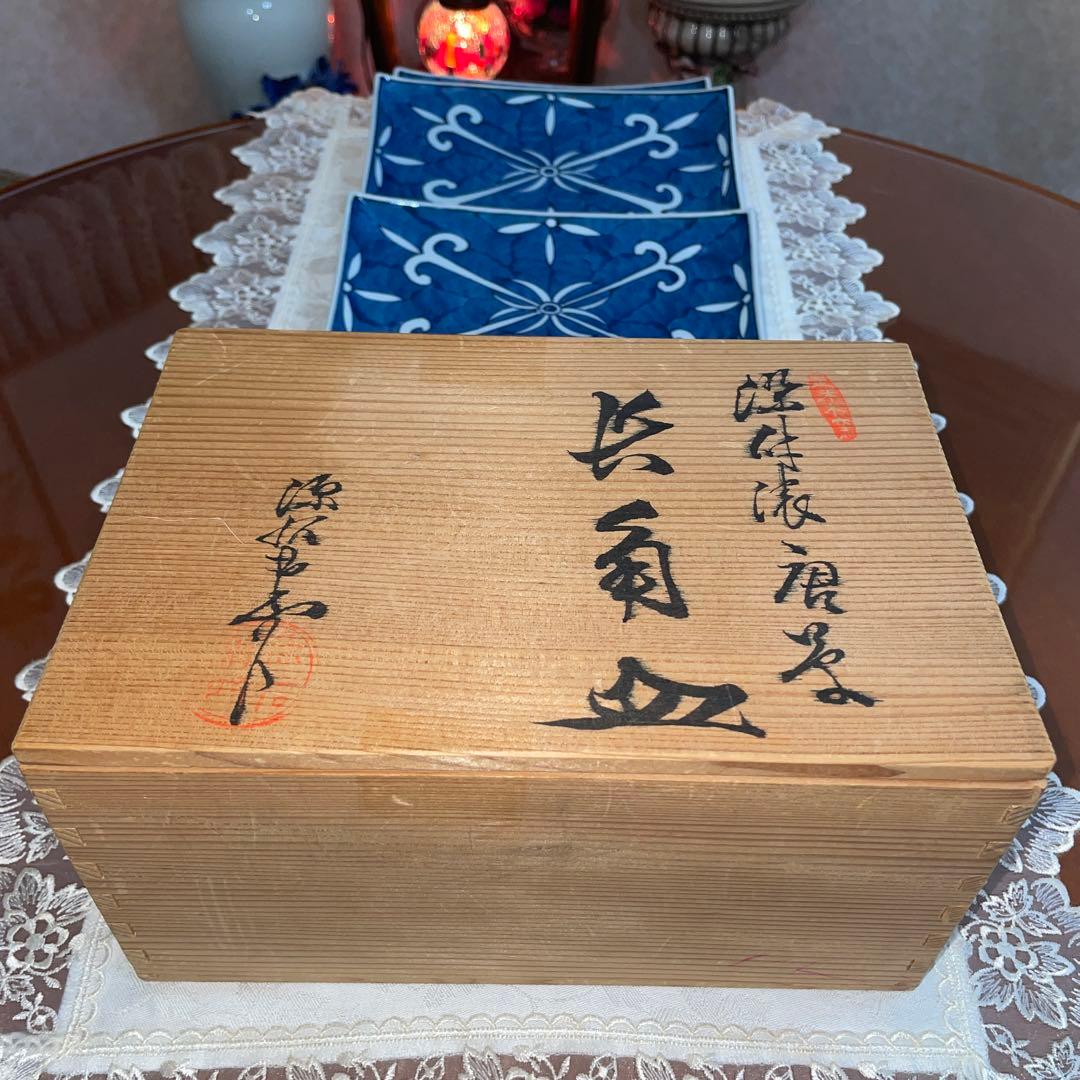 染付濃唐草
長角皿
源右衛門